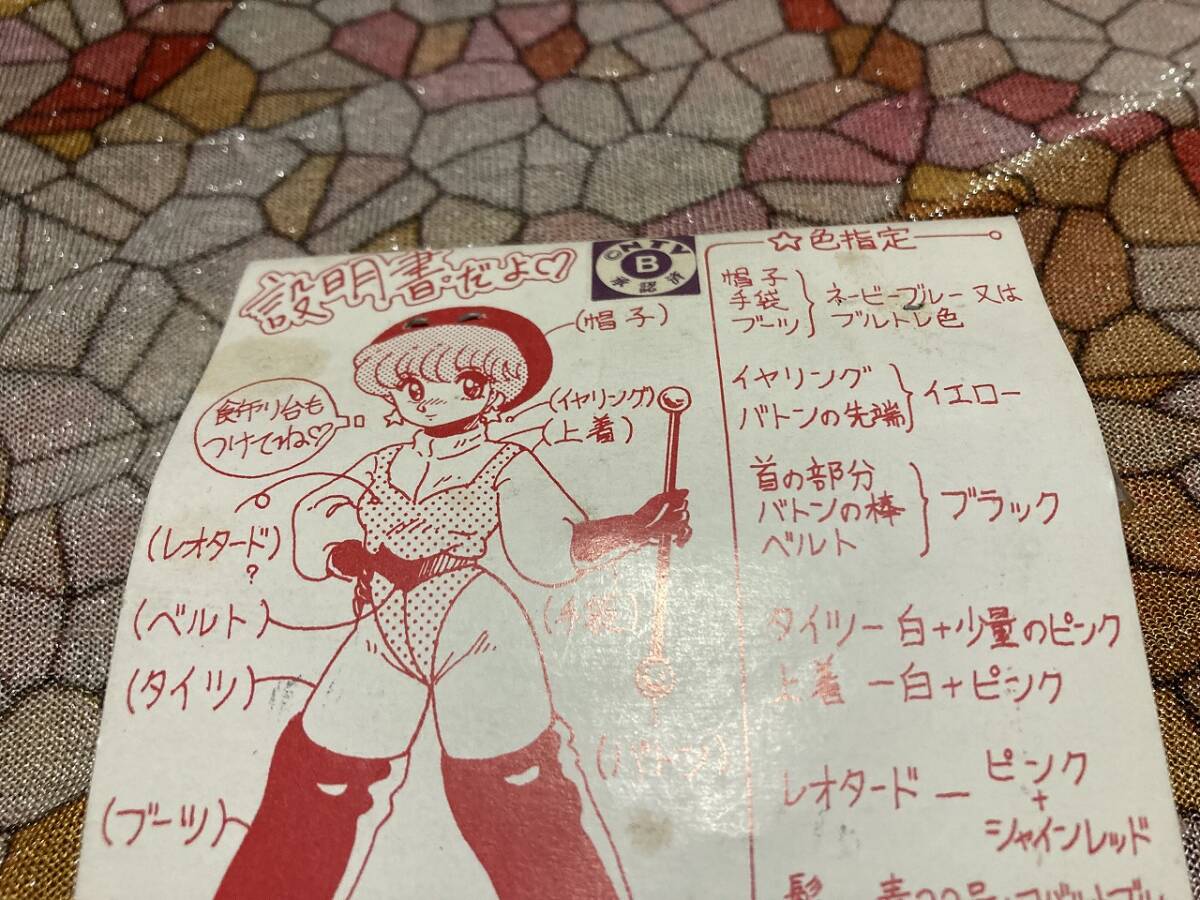 設明書だよ♡
CNTV
B
承認済
(帽子)
飾り台も
つけてね♡
(イヤリング)
(上着)
(レオタード)
?
(ベルト)
(手袋)
(タイツ)
(バトン)
(ブーツ)
☆色指定
帽子
手袋
ブーツ
ネービーブルー又は
ブルトレ色
イヤリング
バトンの先端
イエロー
首の部分
バトンの棒
ベルト
ブラック
タイツー白+少量のピンク
上着 ー白+ピンク
レオタード ー ピンク
+
シャインレッド
髪